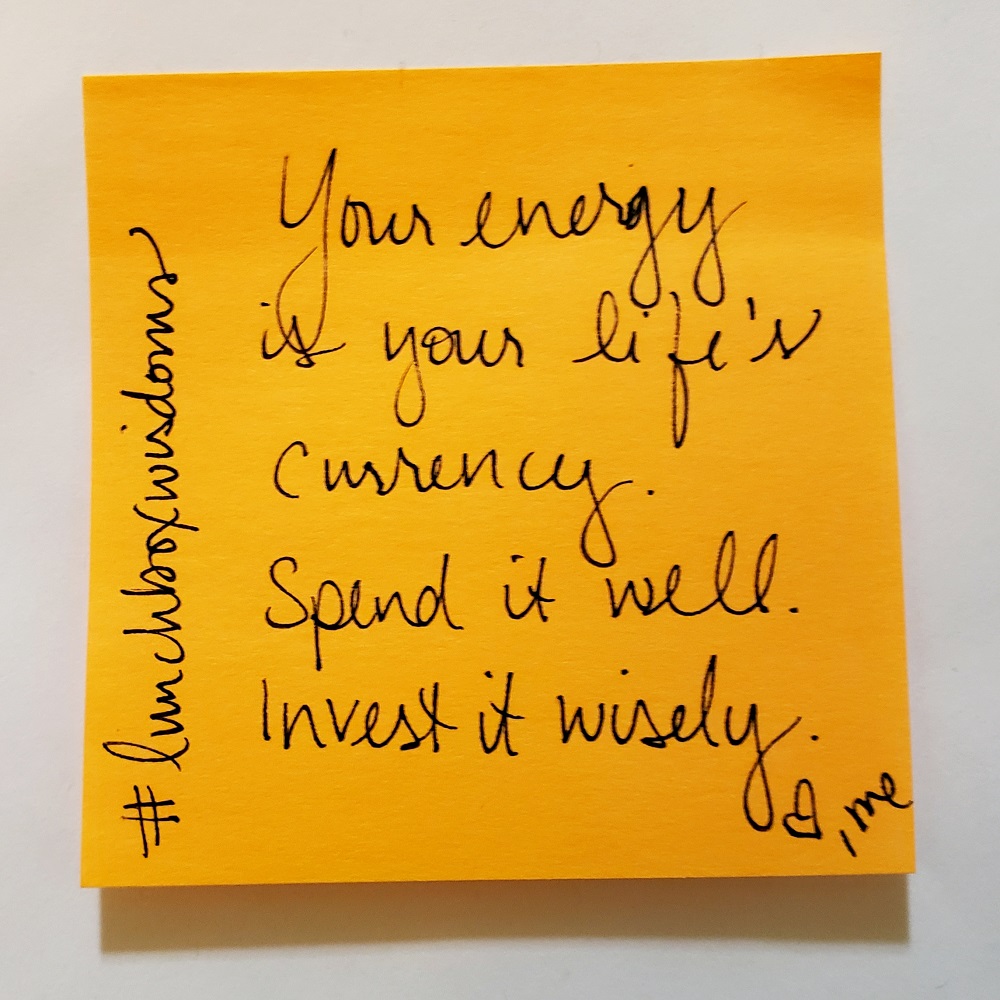 Your energy
is your life's
currency.
Spend it well.
Invest it wisely.
♡, me
#lunchboxwisdoms